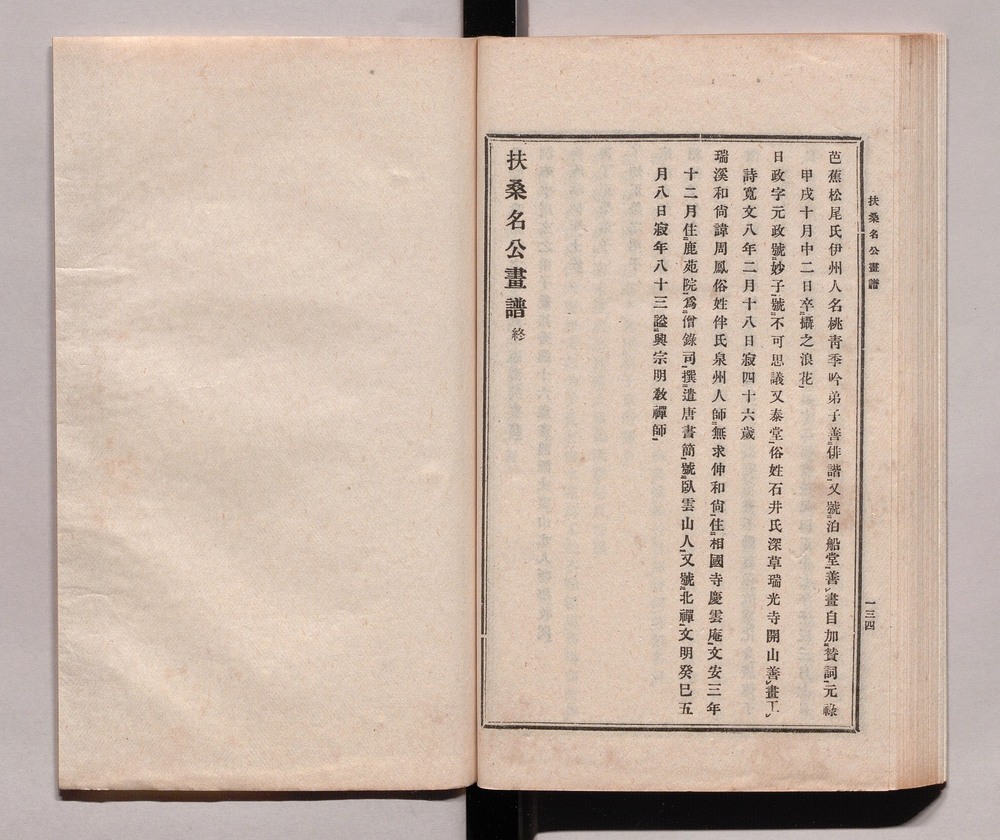 扶桑名公畫譜
一三四
芭蕉松尾氏伊州人名桃靑季吟弟子善俳諧又號泊船堂善畫自加贊詞元祿
甲戌十月中二日卒攝之浪花
日政字元政號妙子號不可思議又泰堂俗姓石井氏深草瑞光寺開山善畫工
詩寬文八年二月十八日寂四十六歲
瑞溪和尙諱周鳳俗姓伴氏泉州人師無求伸和尙住相國寺慶雲庵文安三年
十二月住鹿苑院爲僧錄司撰遣唐書簡號臥雲山人又號北禪文明癸巳五
月八日寂年八十三謚興宗明敎禪師
扶桑名公畫譜 終